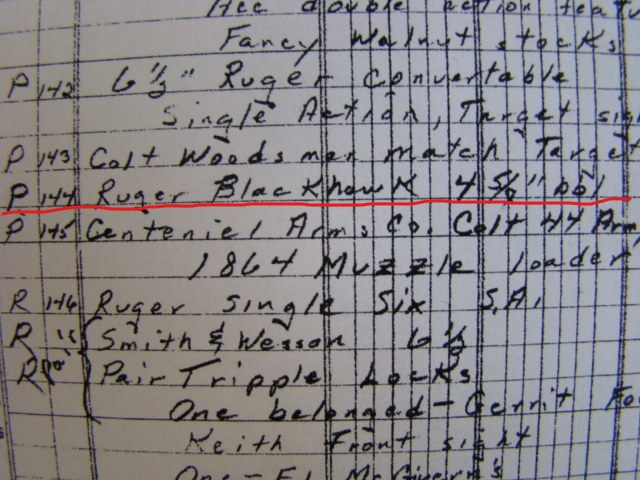 Acc double action
Fancy Walnut stocks
P 142 6 1/2" Ruger Convertable
Single Action, Target
P 143 Colt Woodsman Match Target
P 144 Ruger BlackHawk 4 5/8" bbl
P 145 Centeniel Arms Co. Colt 44 Arm
1864 Muzzle loader
R 146 Ruger Single Six S.A.
R Smith & Wesson 6 1/2
Pair Tripple Locks
One belonged - Gerrit
Keith Front sight
One - McGivern's